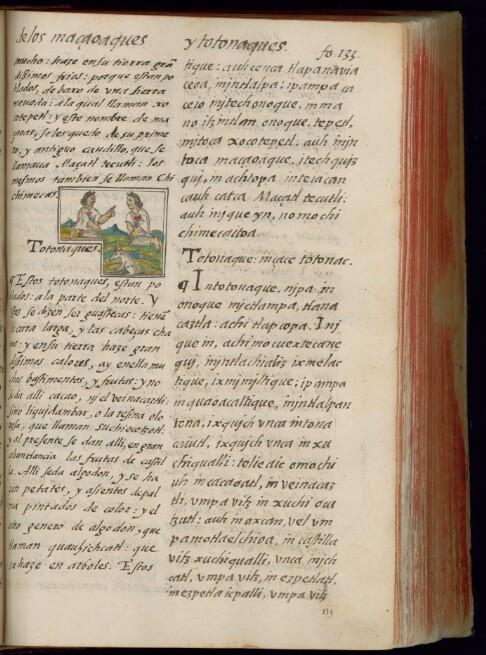 de los maçaoaques
mucho: haze en su tierra grã
dissimos frios: porque estan po
blados, de baxo de vna sierra
neuada: a la qual llaman xo
cotepetl: y este nombre de ma
çaoas, se les quedo de su prime
ro, y antiguo caudillo, que se
llamaua Maçatl tecutli: los
mesmos tambien se llaman Chi
chimecas.
Totonaques
Estos totonaques, estan po
blados: a la parte del norte. Y
estos se dizen ser guastecas: tienẽ
la cara larga, y las cabeças cha
tas: y en su tierra haze gran
dissimos calores, ay en ella mu
chos bastimentos, y frutas: y no
se da alli cacao, nj el veinacaztli:
sino liqujdambar, o la resina olo
rosa, que llaman suchiocotzotl:
y al presente se dan alli, en gran
abundancia las frutas de casti
lla. Alli se da algodon, y se ha
zen petates, y assientos de pal
ma pintados de color: y el
otro genero de algodon, que
llaman quauhichcatl: que
se haze en arboles. Estos
y totonaques.
fo 135.
tique: auh cenca tlapanavia
ceoa, injntlalpa: ipampa ca
ceio injtech onoque, in ma
no itzintlan onoque, tepetl,
mjtoca xocotepetl. auh injn
toca macaoaque, itech qujz
quj, in achtopa inteiacan
cauh catca Macatl tecutli:
auh injque yn, no mochi
chimecaitoa.
Totonaque: injace totonac.
In totonaque, njpa in
onoque mjctlampa, tlana
caztla: achi tlapcopa. Inj
que in, achi imo cuextecane
quj, injntlachializ ixmelac
tique, ixmjmjltique; ipãpa
in quaoacaltique, injntlalpan
tona, ixqujch vnca in tona
caiutl, ixqujch vnca in xu
chiqualli: tel ie dic omochi
uh in cacaoatl, in veinacaz
tli, vmpa vitz in xuchi oco
tzutl: auh in axcan, vel vm
pa motlaelchioa, in castilla
vitz xuchiqualli, vnca injch
catl, vmpa vitz, in ezpetlatl,
in ezpetla icpalli, vmpa vitz
135